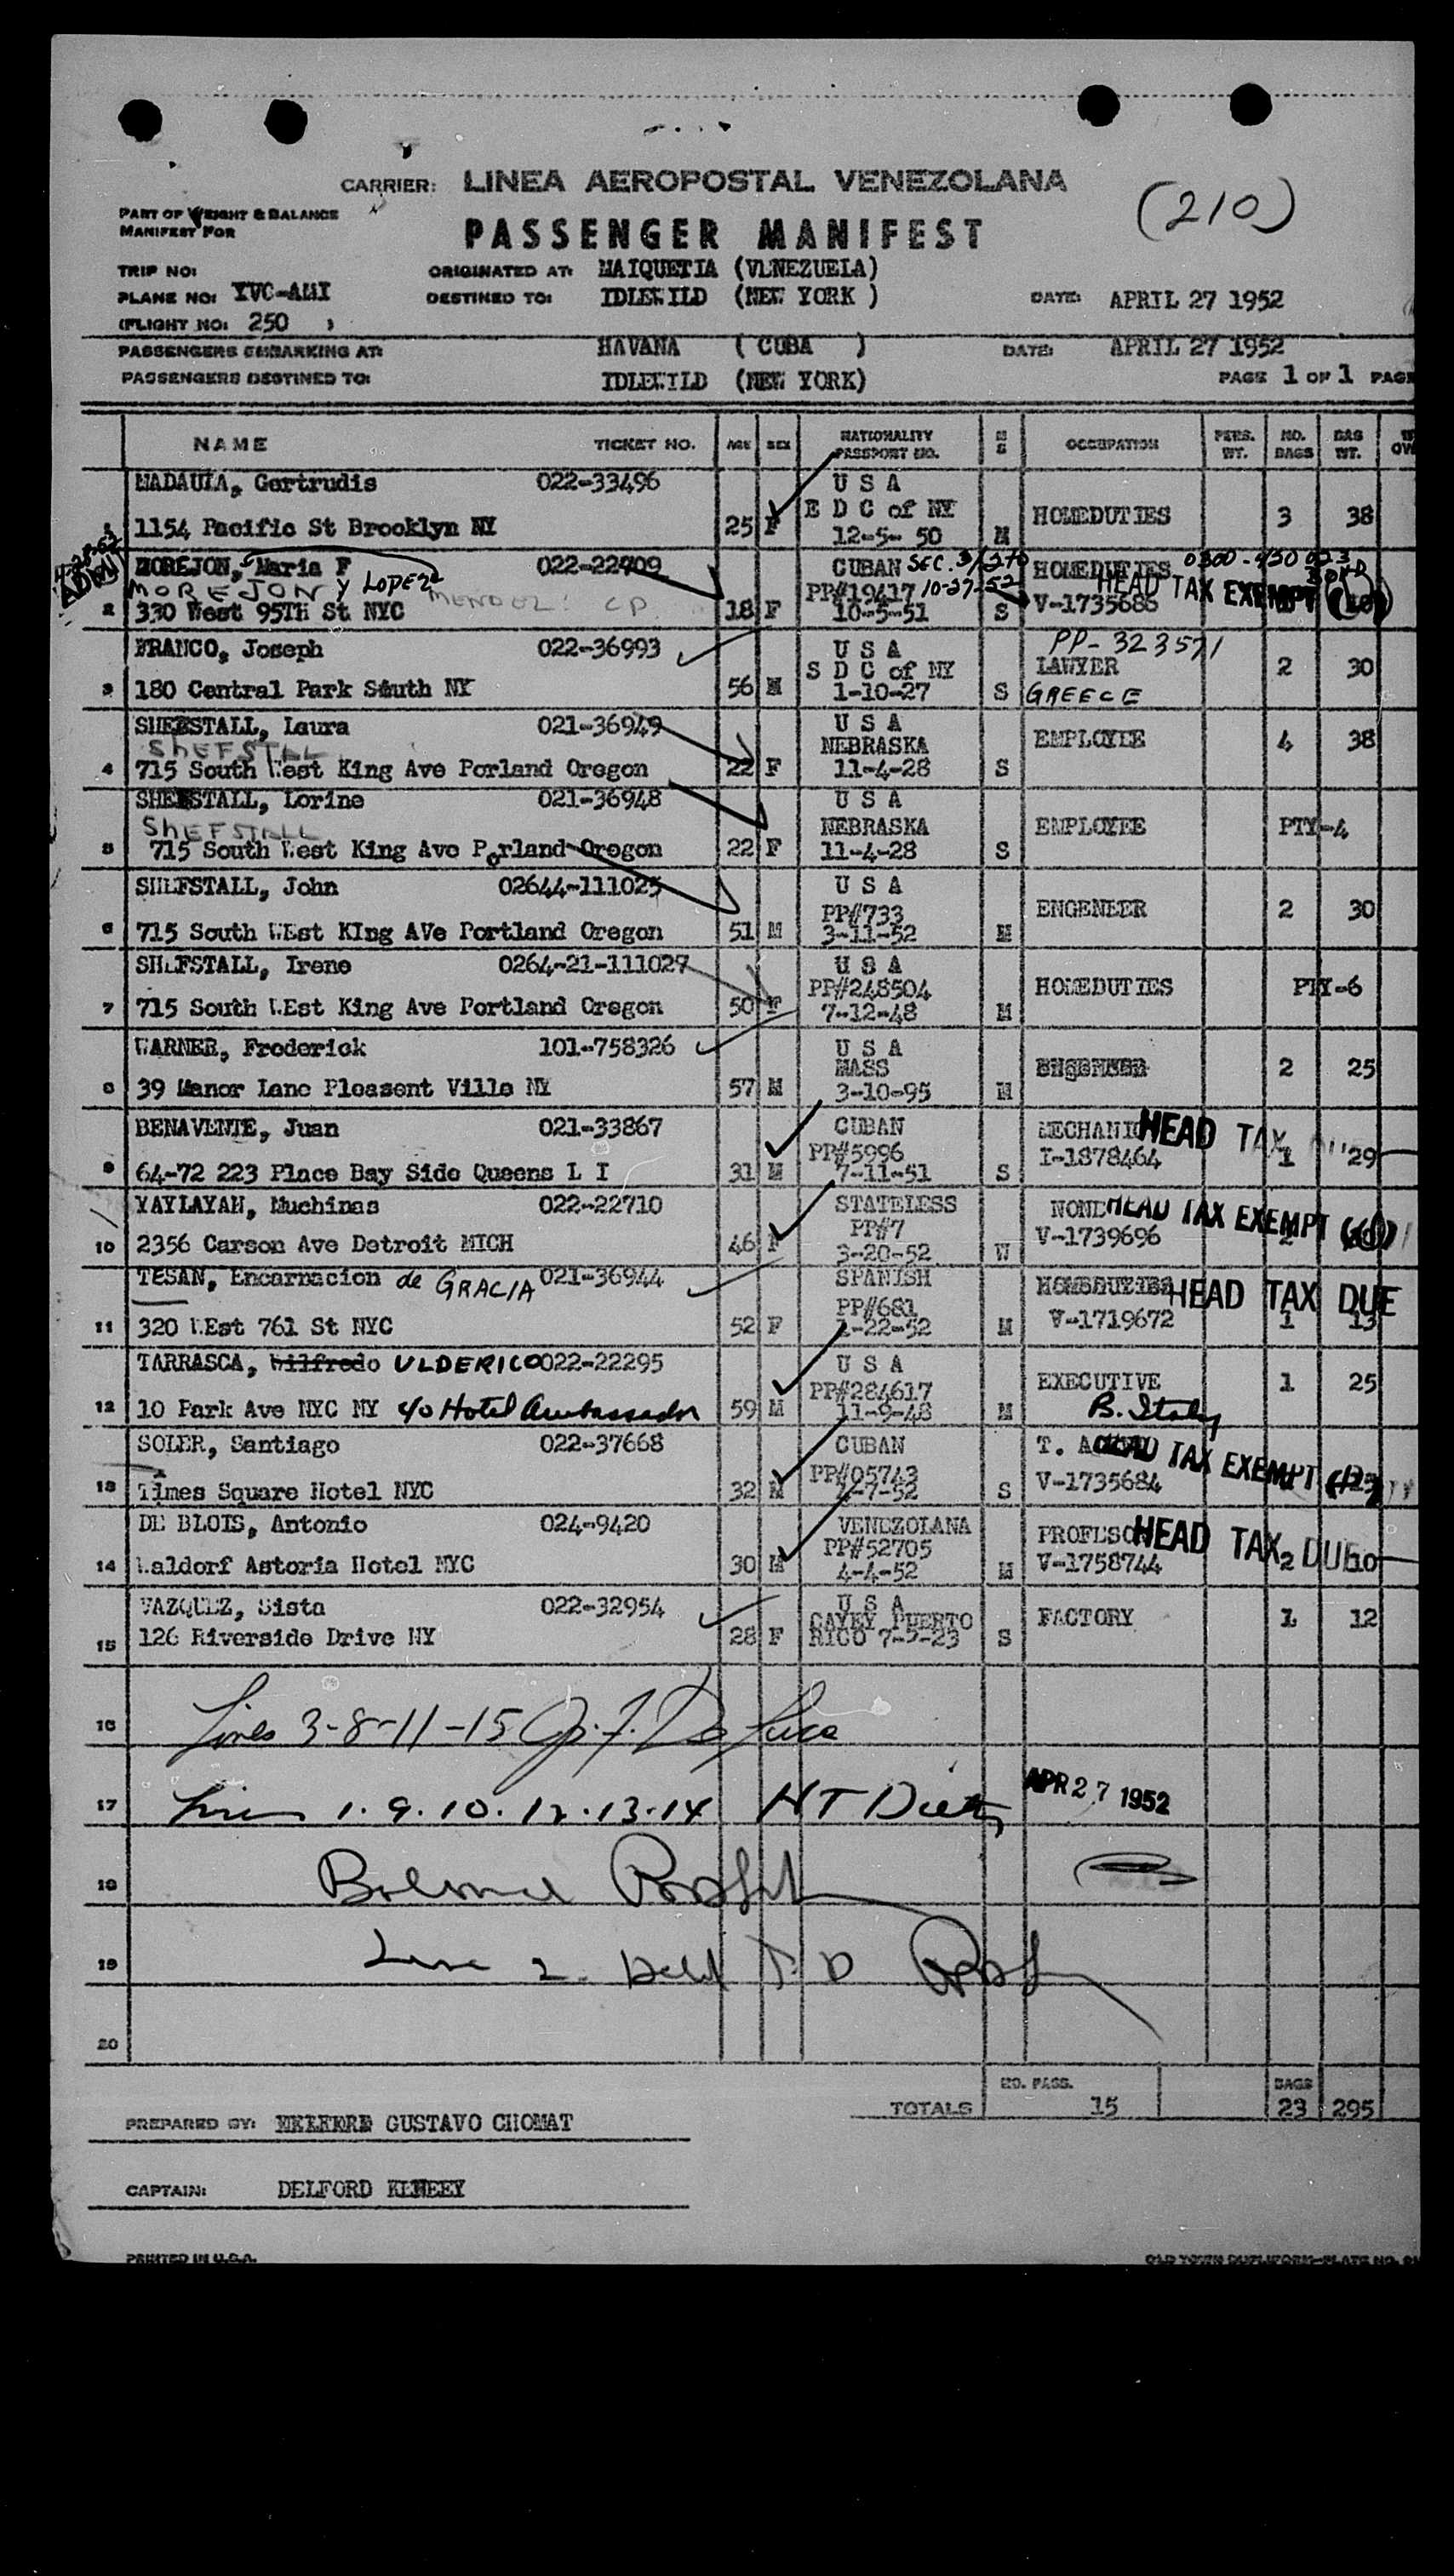 CARRIER: LINEA AEROPOSTAL VENEZOLANA
(210)
PART OF WEIGHT & BALANCE
MANIFEST FOR
PASSENGER MANIFEST
TRIP NO:
ORIGINATED AT: MAIQUETIA (VENEZUELA)
PLANE NO: YVC-AMI
DESTINED TO: IDLEWILD (NEW YORK )
DATE: APRIL 27 1952
(FLIGHT NO: 250 )
PASSENGERS EMBARKING AT: HAVANA ( CUBA )
DATE: APRIL 27 1952
PASSENGERS DESTINED TO: IDLEWILD (NEW YORK)
PAGE 1 OF 1 PAGE
NAME TICKET NO. AGE SEX NATIONALITY PASSPORT NO. M S OCCUPATION PERS. WT. NO. BAGS BAG WT.
MADAULA, Gertrudis 022-33496 U S A
E D C of NY HOMEDUTIES 3 38
1 1154 Pacific St Brooklyn NY 25 F 12-5- 50 M
ADM
MOREJON, Maria F 022-22709 CUBAN SEC. 3/270 HOMEDUTIES 0300-430 023
BOND
MOREJON y LOPEZ MENDEZ: CP PP#19417 10-27-52 HEAD TAX EXEMPT
2 330 West 95TH St NYC 18 F 10-5-51 S V-1735686
FRANCO, Joseph 022-36993 U S A PP-323571
S D C of NY LAWYER 2 30
3 180 Central Park South NY 56 M 1-10-27 S GREECE
SHEESTALL, Laura 021-36949 U S A
SHEFSTALL NEBRASKA EMPLOYEE 4 38
4 715 South West King Ave Porland Oregon 22 F 11-4-28 S
SHEESTALL, Lorine 021-36948 U S A
SHEFSTALL NEBRASKA EMPLOYEE PTY-4
5 715 South West King Ave Porland Oregon 22 F 11-4-28 S
SHEFSTALL, John 02644-111025 U S A
PP#733 ENGENEER 2 30
6 715 South WEst KIng AVe Portland Oregon 51 M 3-11-52 M
SHEFSTALL, Irene 0264-21-111027 U S A
PP#248504 HOMEDUTIES PTY-6
7 715 South WEst King Ave Portland Oregon 50 F 7-12-48 M
WARNER, Frederick 101-758326 U S A
MASS 2 25
8 39 Manor Lane Pleasent Ville NY 57 M 3-10-95 M
BENAVENTE, Juan 021-33867 CUBAN MECHANIC HEAD TAX
PP#5996 I-1878464 1 29
9 64-72 223 Place Bay Side Queens L I 31 M 7-11-51 S
YAYLAYAH, Muchinas 022-22710 STATELESS NONE HEAD TAX EXEMPT
PP#7 V-1739696 2
10 2356 Carson Ave Detroit MICH 46 F 3-20-52 W
TESAN, Encarnacion de GRACIA 021-36944 SPANISH HOMEDUTIES HEAD TAX DUE
PP#681 V-1719672 1 13
11 320 WEst 761 St NYC 52 F 1-22-52 M
TARRASCA, Wilfredo ULDERICO 022-22295 U S A
PP#284617 EXECUTIVE 1 25
12 10 Park Ave NYC NY c/o Hotel Ambassador 59 M 11-9-48 M B. Italy
SOLER, Santiago 022-37668 CUBAN HEAD TAX EXEMPT
PP#05743 V-1735684
13 Times Square Hotel NYC 32 M 4-7-52 S
DE BLOIS, Antonio 024-9420 VENEZOLANA PROFESOR HEAD TAX DUE
PP#52705
14 Waldorf Astoria Hotel NYC 30 M 4-4-52 M V-1758744 2 10
VAZQUEZ, Sista 022-32954 U S A
CAYEY PUERTO FACTORY 1 12
15 126 Riverside Drive NY 28 F RICO 7-5-23 S
16 Lines 3-8-11-15 J. F. De Luca
17 Lines 1. 9. 10. 12. 13. 14 HT Dietz APR 27 1952
18
19 Line 2. Held
20
TOTALS NO. PASS. 15 BAGS 23 295
PREPARED BY: GUSTAVO CHOMAT
CAPTAIN: DELFORD
PRINTED IN U.S.A.